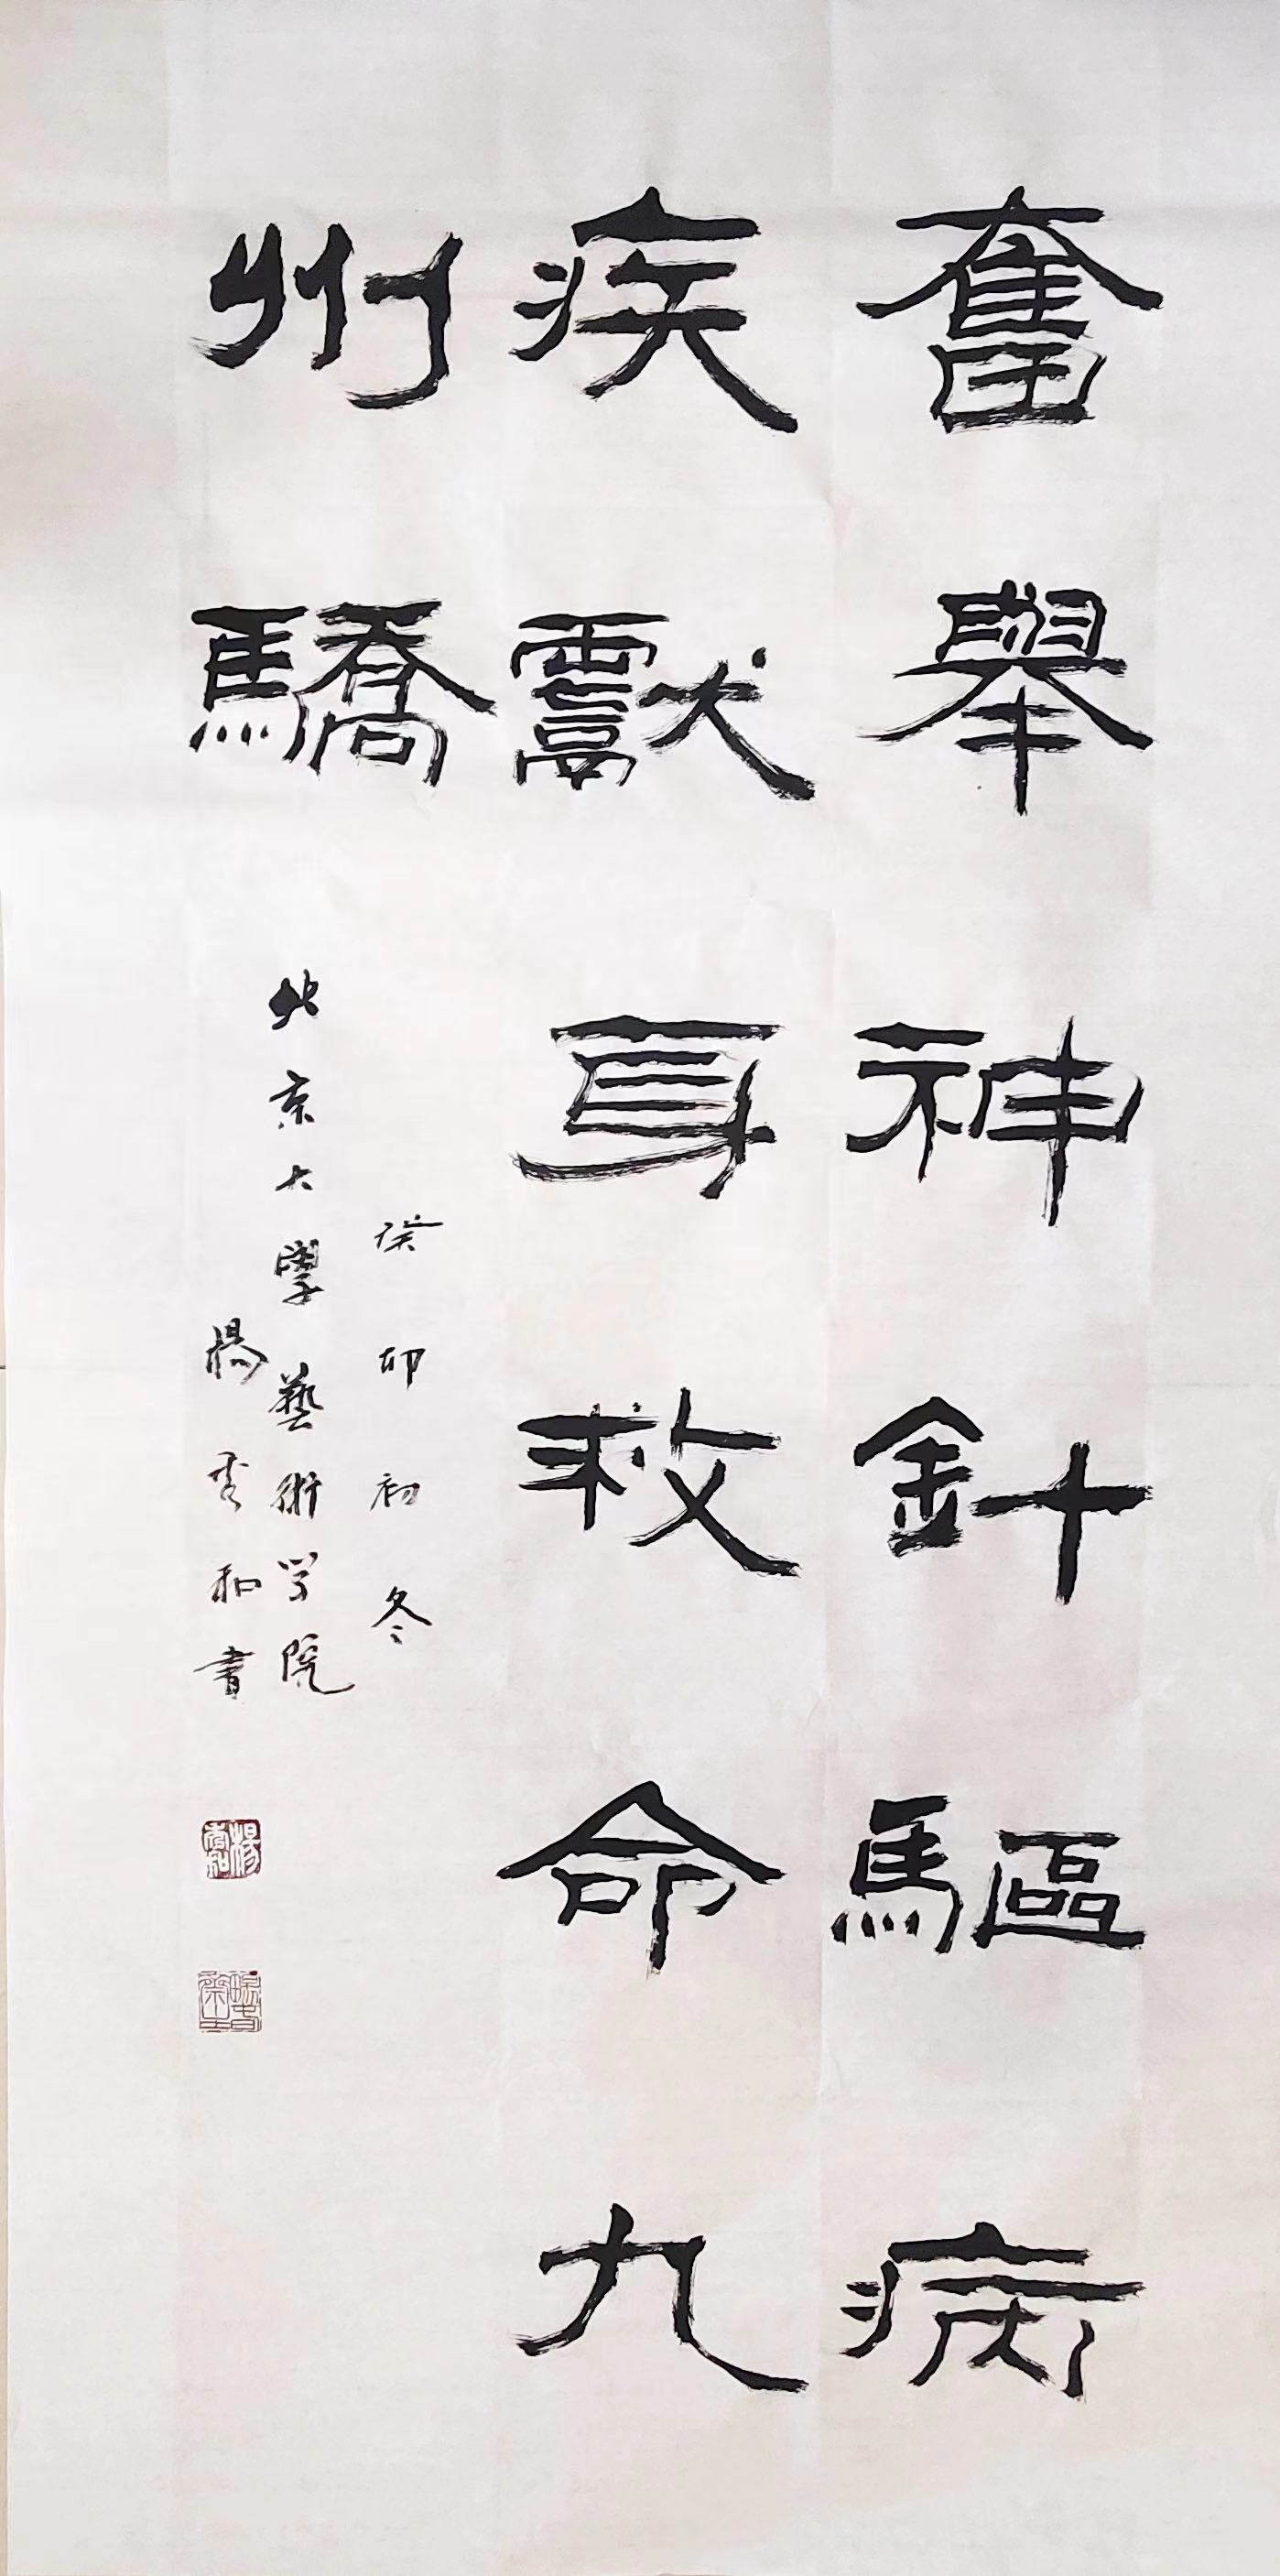 奮舉神針驅病
疾獻身救命九
州驕
癸卯初冬
北京大學藝術学院
楊秀和書